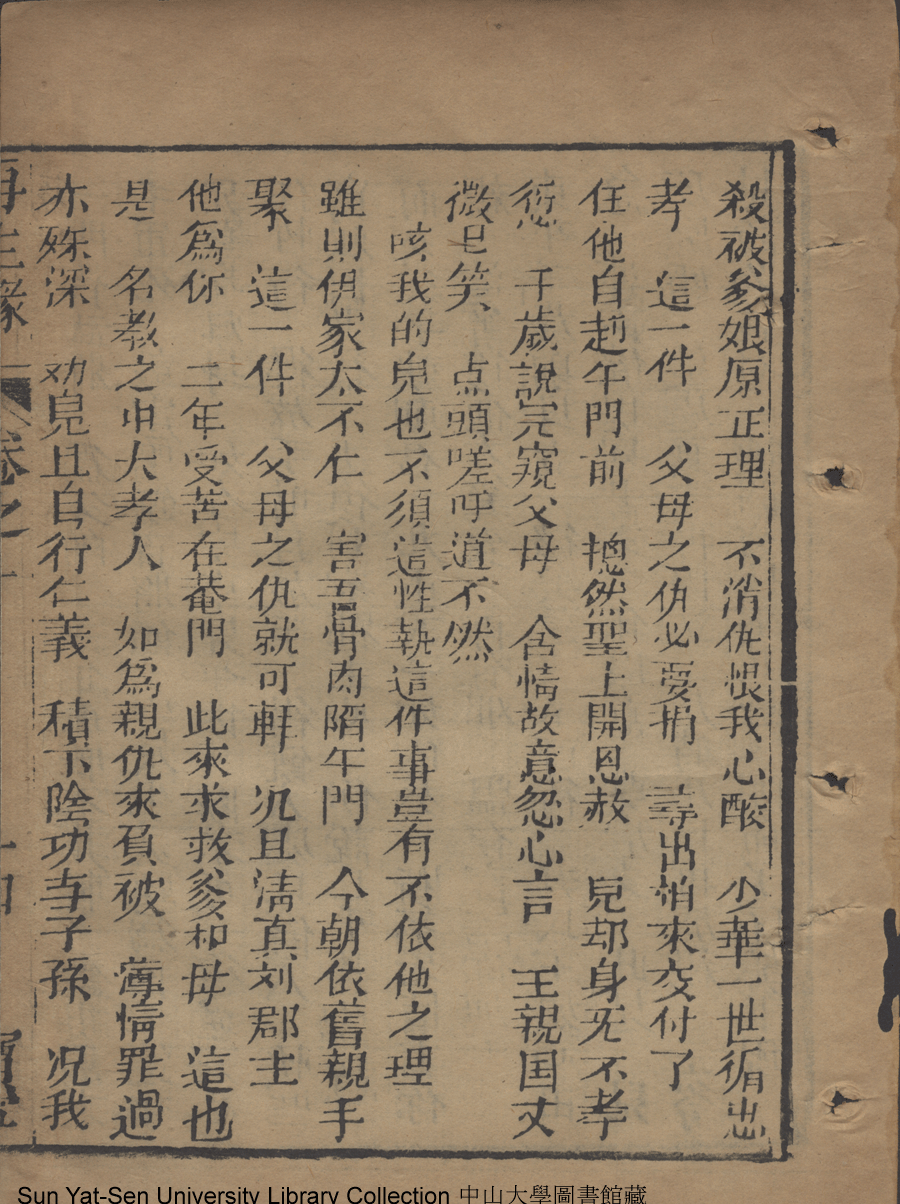 殺被爹娘原正理　不消仇恨我心酸　少華一世循忠
孝　這一件　父母之仇必要捐　尋出怕來交付了
任他自赴午門前　捴然聖上開恩赦　皃却身死不孝
愆　千歲說完窺父母　含情故意忽心言　王親国丈
微〻笑　点頭嗟呼道不然
咳我的皃也不須這性執這件事豈有不依他之理
雖則伊家太不仁　害吾骨肉陌午門　今朝依舊親手
聚　這一件　父母之仇就可軒　况且淸真刘郡主
他為你　二年受苦在菴門　此來求救爹和母　這也
是　名教之中大孝人　如為親仇來負被　薄情罪過
亦殊深　劝皃且自行仁義　積下陰功与子孫　况我
再生緣　卷之十
Sun Yat-Sen University Library Collection 中山大學圖書館藏